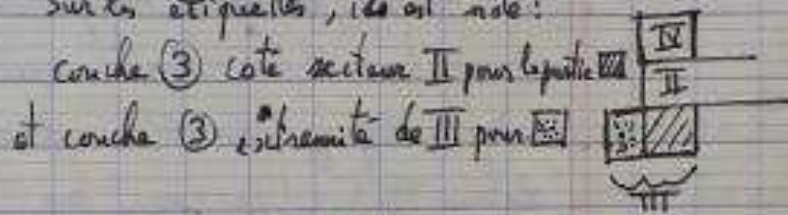 Sur les étiquettes, il est noté :
couche ③ coté secteur II pour la partie
et couche ③ extremité de III pour
IV
II
III